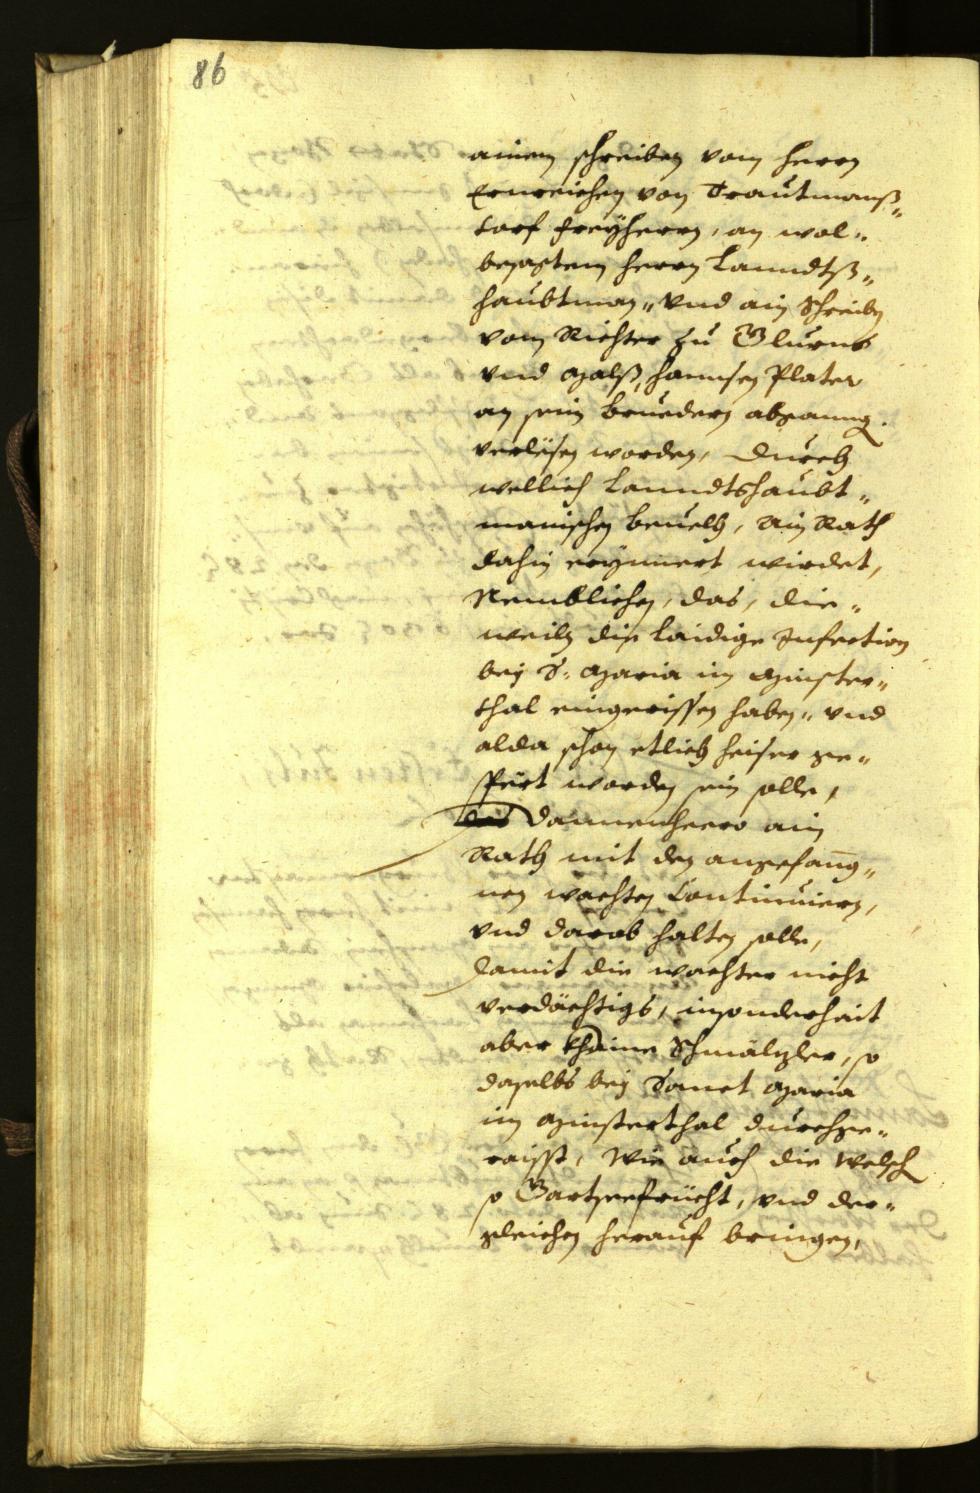 86
ainem schreiben vom herrn
Ernreichen von Trautmanß„
torf Freÿherrn, an wol„
besagtem herrn Lanndtß„
haubtman„ vnd ain Schreibn
vom Richter zu Glurns
vnd Malß, Hannsen Plater
an sein Brüedern abganng.
verlesen worden, Durch
wellich Lanndtshaubt„
manischen beuelch, Ain Rath
dahin erÿnnert wirdet,
Nemblichen, das, die„
weiln die laidige Infection
bey S. Maria im Münster„
thal eingerissen haben„ vnd
alda schon etlich heiser ge„
spert worden sein solle,
das dannenhero ain
Rath mit den angefanng„
nen wachten Continuiern,
vnd darob halten solle,
damit die wachter nicht
verdächtigs, insonderheit
aber khaine Schmälzler, so
daselbs bey Sanct Maria
im Münsterthal durchge„
raisst, Wie auch die Welsch
so Gartenfrücht, vnd der„
gleichen herauf bringen,